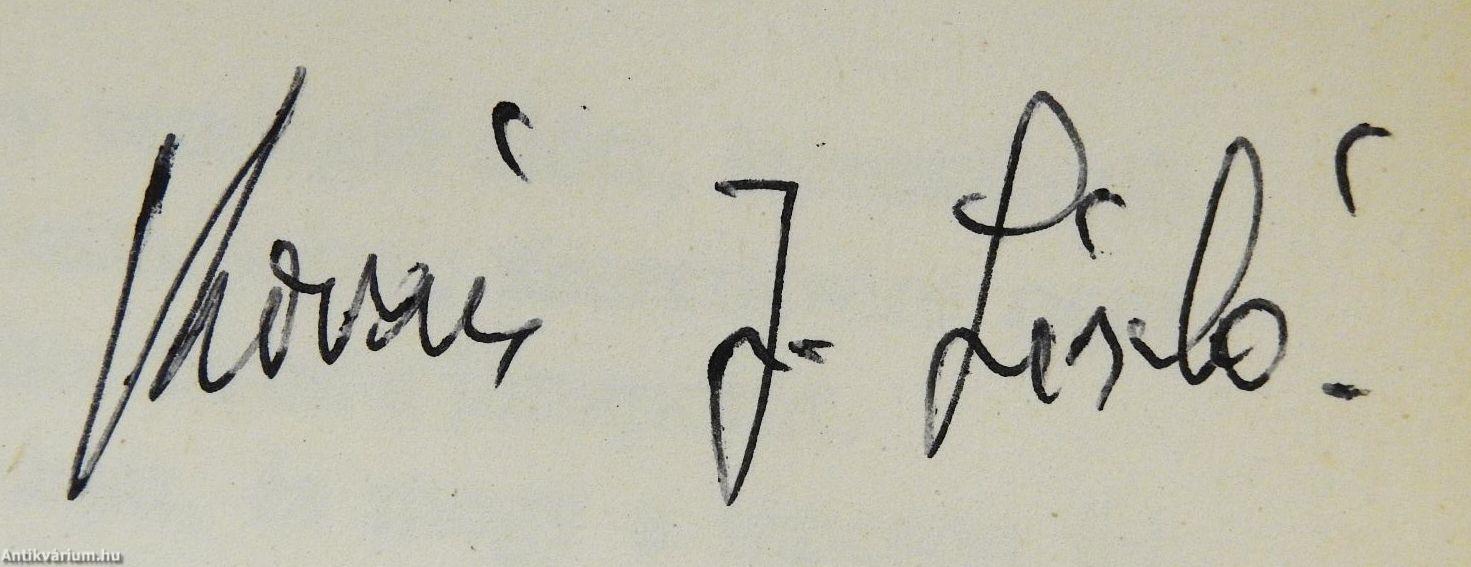 Kovács J. László.
Antikvárium.hu